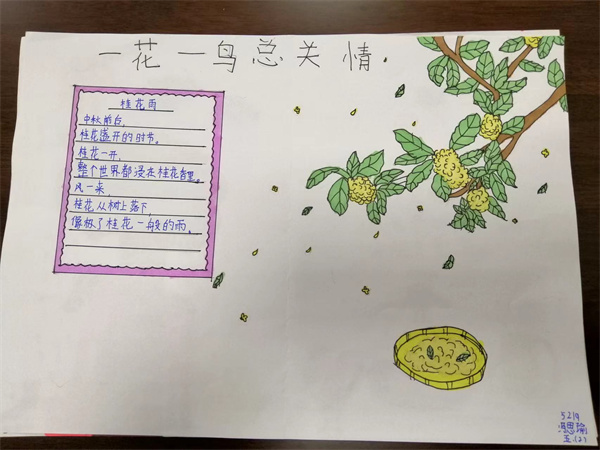 一花一鸟总关情
桂花雨
中秋前后,
桂花盛开的时节。
桂花一开,
整个世界都浸在桂花香里。
风一来,
桂花从树上落下,
像极了桂花一般的雨。
5219
思瑜
五(2)